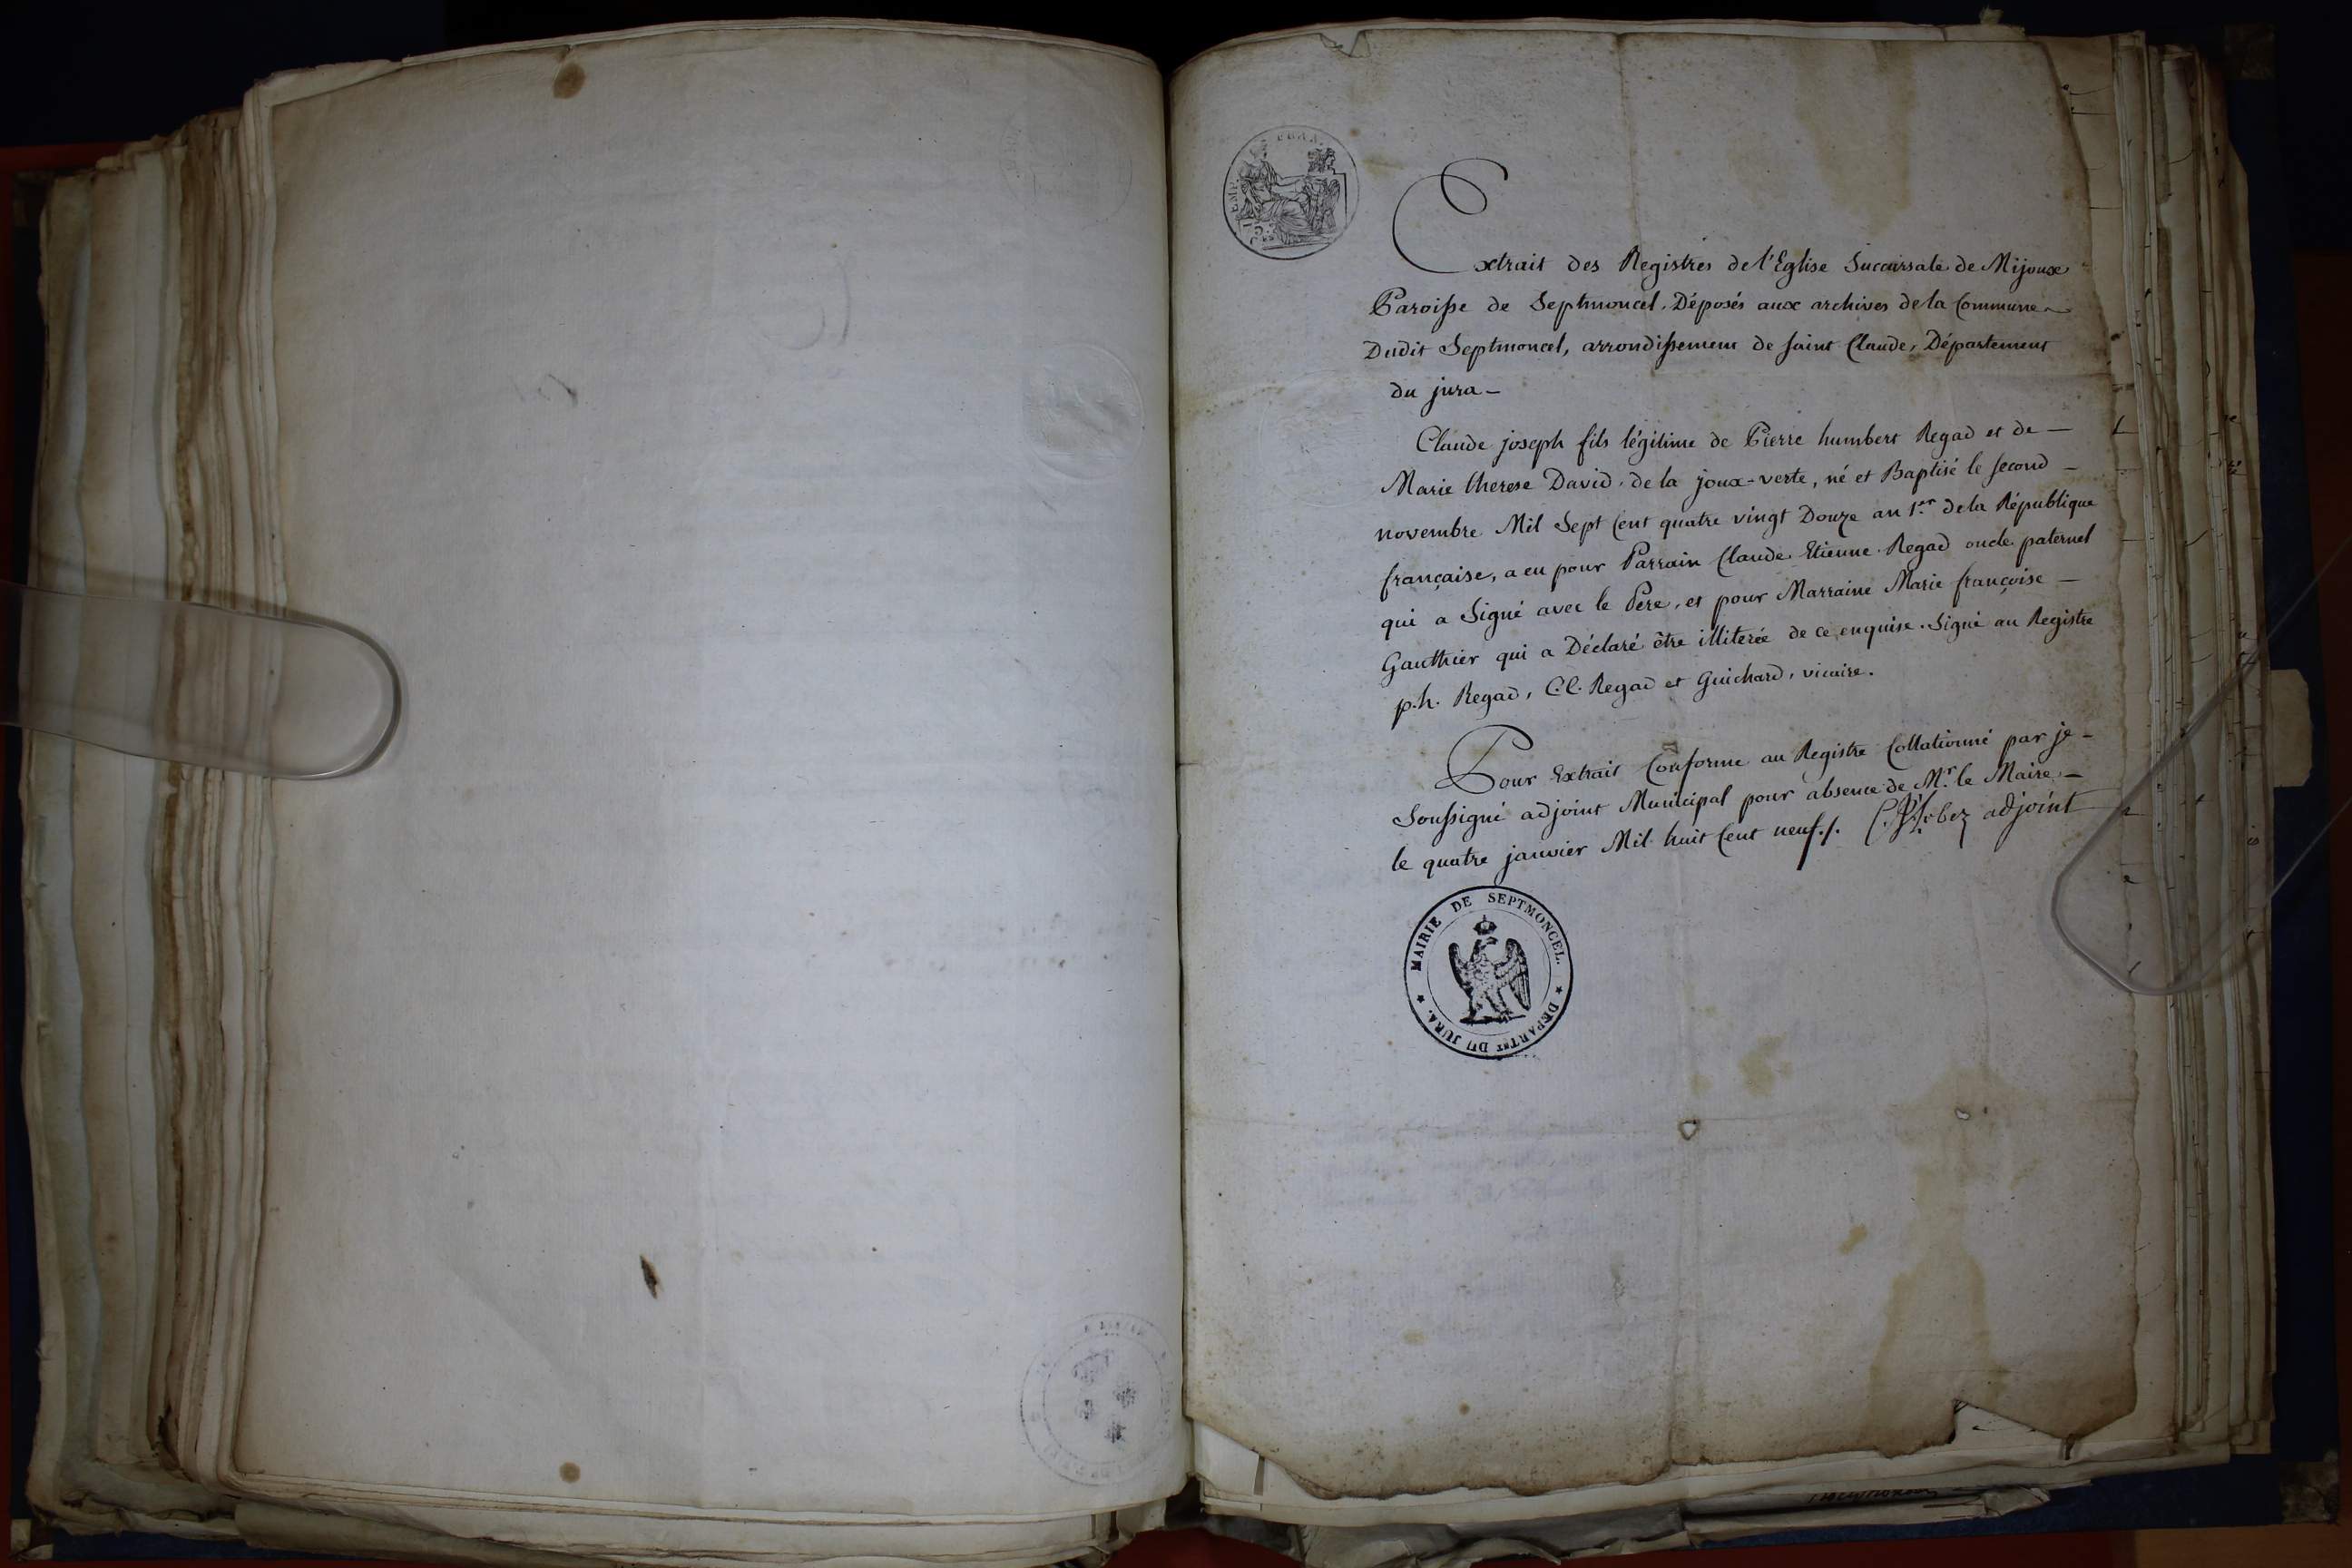 Extrait des Registres de l'Eglise Succursale de Mijoux
Paroisse de Septmoncel, Déposés aux archives de la Commune
Dudit Septmoncel, arrondissement de saint Claude, Département
du jura -
Claude joseph fils légitime de Pierre humbert Regad et de -
Marie therese David, de la joux-verte, né et Baptisé le second -
novembre Mil Sept Cent quatre vingt Douze an 1.er de la République
française, a eu pour Parrain Claude Etienne Regad oncle paternel
qui a Signé avec le Pere, et pour Marraine Marie françoise -
Gauthier qui a Déclaré être illiterée de ce enquise. Signé au Registre
p.h. Regad, C.E. Regad et Guichard, vicaire.
Pour Extrait Conforme au Registre Collationné par je -
Soussigné adjoint Municipal pour absence de Mr. le Maire, -
le quatre janvier Mil huit Cent neuf./. adjoint
MAIRIE DE SEPTMONCEL. ★ DÉPARTNT DU JURA. ★